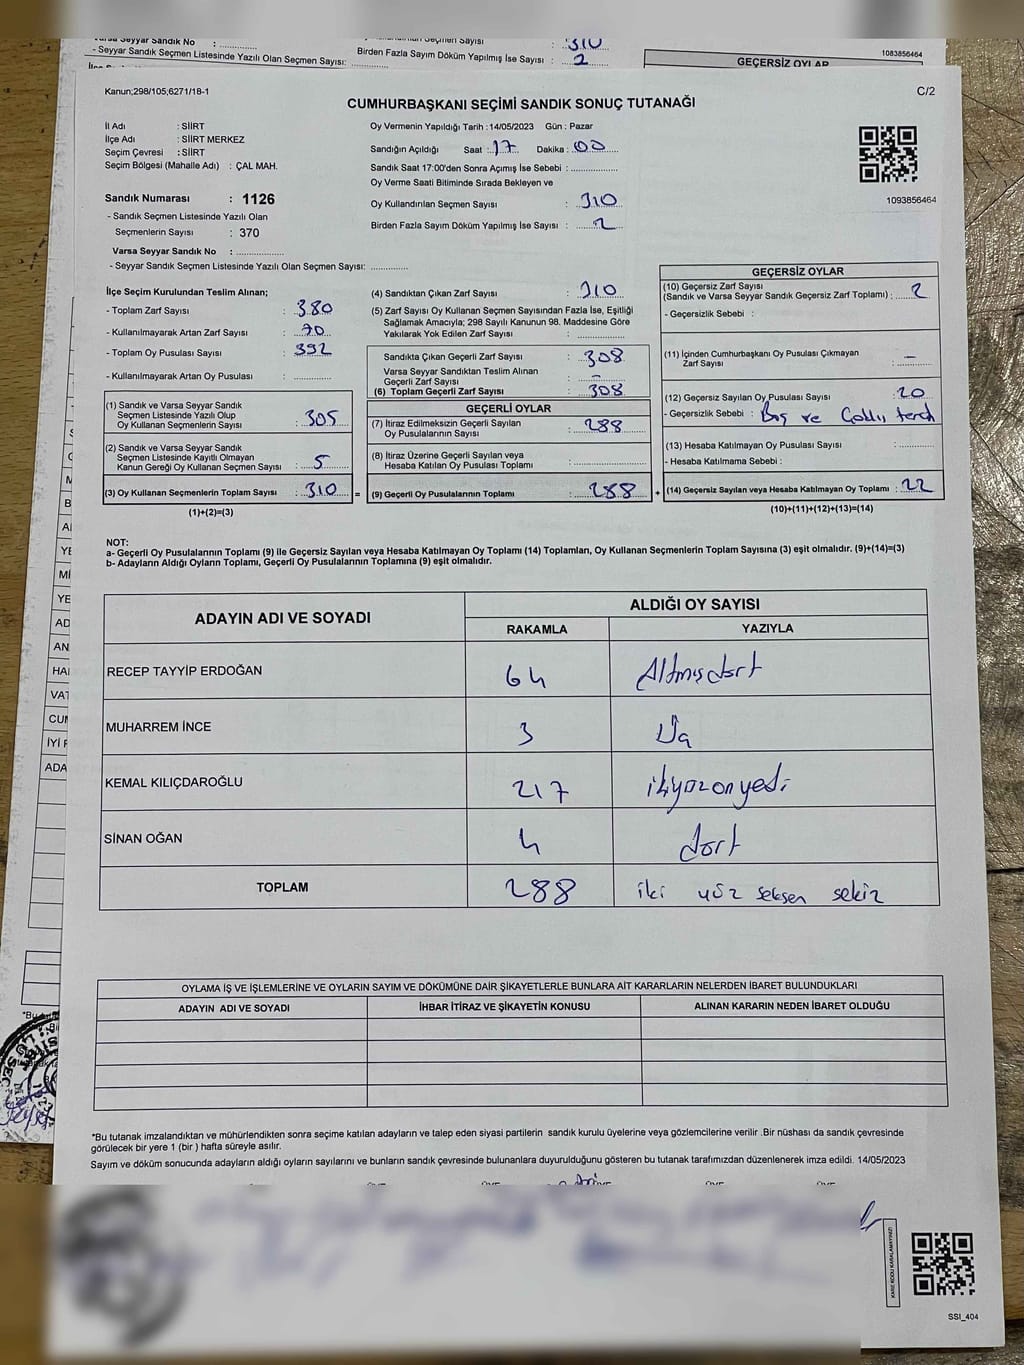 Varsa Seyyar Sandık No :
- Seyyar Sandık Seçmen Listesinde Yazılı Olan Seçmen Sayısı:
310
Birden Fazla Sayım Döküm Yapılmış İse Sayısı : 2
1083856464
GEÇERSİZ OYLAR
Kanun;298/105;6271/18-1
C/2
CUMHURBAŞKANI SEÇİMİ SANDIK SONUÇ TUTANAĞI
İl Adı : SİİRT
İlçe Adı : SİİRT MERKEZ
Seçim Çevresi : SİİRT
Seçim Bölgesi (Mahalle Adı) : ÇAL MAH.
Sandık Numarası : 1126
- Sandık Seçmen Listesinde Yazılı Olan
Seçmenlerin Sayısı : 370
Varsa Seyyar Sandık No :
- Seyyar Sandık Seçmen Listesinde Yazılı Olan Seçmen Sayısı:
Oy Vermenin Yapıldığı Tarih :14/05/2023 Gün : Pazar
Sandığın Açıldığı Saat : 17 Dakika : 00
Sandık Saat 17:00'den Sonra Açılmış İse Sebebi :
Oy Verme Saati Bitiminde Sırada Bekleyen ve
Oy Kullandırılan Seçmen Sayısı : 310
Birden Fazla Sayım Döküm Yapılmış İse Sayısı : 2
1093856464
İlçe Seçim Kurulundan Teslim Alınan;
- Toplam Zarf Sayısı : 380
- Kullanılmayarak Artan Zarf Sayısı : 70
- Toplam Oy Pusulası Sayısı : 392
- Kullanılmayarak Artan Oy Pusulası :
(1) Sandık ve Varsa Seyyar Sandık
Seçmen Listesinde Yazılı Olup
Oy Kullanan Seçmenlerin Sayısı : 305
(2) Sandık ve Varsa Seyyar Sandık
Seçmen Listesinde Kayıtlı Olmayan
Kanun Gereği Oy Kullanan Seçmen Sayısı : 5
(3) Oy Kullanan Seçmenlerin Toplam Sayısı : 310 =
(1)+(2)=(3)
(4) Sandıktan Çıkan Zarf Sayısı : 310
(5) Zarf Sayısı Oy Kullanan Seçmen Sayısından Fazla İse, Eşitliği
Sağlamak Amacıyla; 298 Sayılı Kanunun 98. Maddesine Göre
Yakılarak Yok Edilen Zarf Sayısı :
Sandıkta Çıkan Geçerli Zarf Sayısı : 308
Varsa Seyyar Sandıktan Teslim Alınan
Geçerli Zarf Sayısı : -
(6) Toplam Geçerli Zarf Sayısı : 308
GEÇERLİ OYLAR
(7) İtiraz Edilmeksizin Geçerli Sayılan
Oy Pusulalarının Sayısı : 288
(8) İtiraz Üzerine Geçerli Sayılan veya
Hesaba Katılan Oy Pusulası Toplamı :
(9) Geçerli Oy Pusulalarının Toplamı : 288 +
GEÇERSİZ OYLAR
(10) Geçersiz Zarf Sayısı
(Sandık ve Varsa Seyyar Sandık Geçersiz Zarf Toplamı) : 2
- Geçersizlik Sebebi :
(11) İçinden Cumhurbaşkanı Oy Pusulası Çıkmayan
Zarf Sayısı : -
(12) Geçersiz Sayılan Oy Pusulası Sayısı : 20
- Geçersizlik Sebebi : Boş ve
(13) Hesaba Katılmayan Oy Pusulası Sayısı :
- Hesaba Katılmama Sebebi :
(14) Geçersiz Sayılan veya Hesaba Katılmayan Oy Toplamı : 22
(10)+(11)+(12)+(13)=(14)
NOT:
a- Geçerli Oy Pusulalarının Toplamı (9) ile Geçersiz Sayılan veya Hesaba Katılmayan Oy Toplamı (14) Toplamları, Oy Kullanan Seçmenlerin Toplam Sayısına (3) eşit olmalıdır. (9)+(14)=(3)
b- Adayların Aldığı Oyların Toplamı, Geçerli Oy Pusulalarının Toplamına (9) eşit olmalıdır.
ADAYIN ADI VE SOYADI
ALDIĞI OY SAYISI
RAKAMLA YAZIYLA
RECEP TAYYİP ERDOĞAN 64 Altmışdört
MUHARREM İNCE 3 Üç
KEMAL KILIÇDAROĞLU 217 ikiyüzonyedi
SİNAN OĞAN 4 dört
TOPLAM 288 iki yüz seksen sekiz
OYLAMA İŞ VE İŞLEMLERİNE VE OYLARIN SAYIM VE DÖKÜMÜNE DAİR ŞİKAYETLERLE BUNLARA AİT KARARLARIN NELERDEN İBARET BULUNDUKLARI
ADAYIN ADI VE SOYADI İHBAR İTİRAZ VE ŞİKAYETİN KONUSU ALINAN KARARIN NEDEN İBARET OLDUĞU
*Bu tutanak imzalandıktan ve mühürlendikten sonra seçime katılan adayların ve talep eden siyasi partilerin sandık kurulu üyelerine veya gözlemcilerine verilir .Bir nüshası da sandık çevresinde
görülecek bir yere 1 (bir ) hafta süreyle asılır.
Sayım ve döküm sonucunda adayların aldığı oyların sayılarını ve bunların sandık çevresinde bulunanlara duyurulduğunu gösteren bu tutanak tarafımızdan düzenlenerek imza edildi. 14/05/2023
KARE KODU KARALAMAYINIZ!
SSI_404